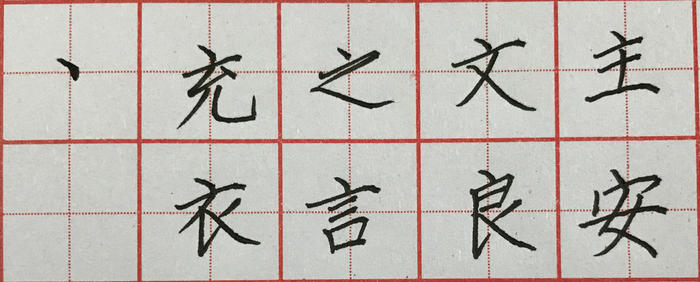 丶充之文主
衣言良安